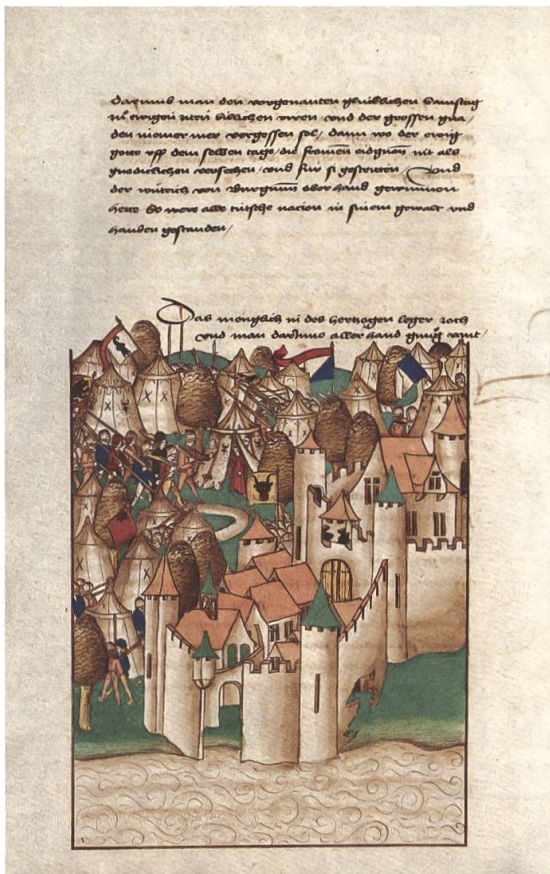 Darumb man den vorgenanten glücklichen Samstag
in ewigen ziten billichen viren vnd der grossen gna
den niemer mer vergessen sol, dann wo der ewig
gott vff dem selben tage die fromen eidgnossen nit als
gnediclichen versechen vnd für si gestritten Vnd
der wütrich von Burgunn ober hand gewunnen
hette So were alle tütsche nacion in sinem gewalt vnd
handen gestanden
Das menglich in des hertzogen leger zoch
vnd man darinne aller hand gnug vant